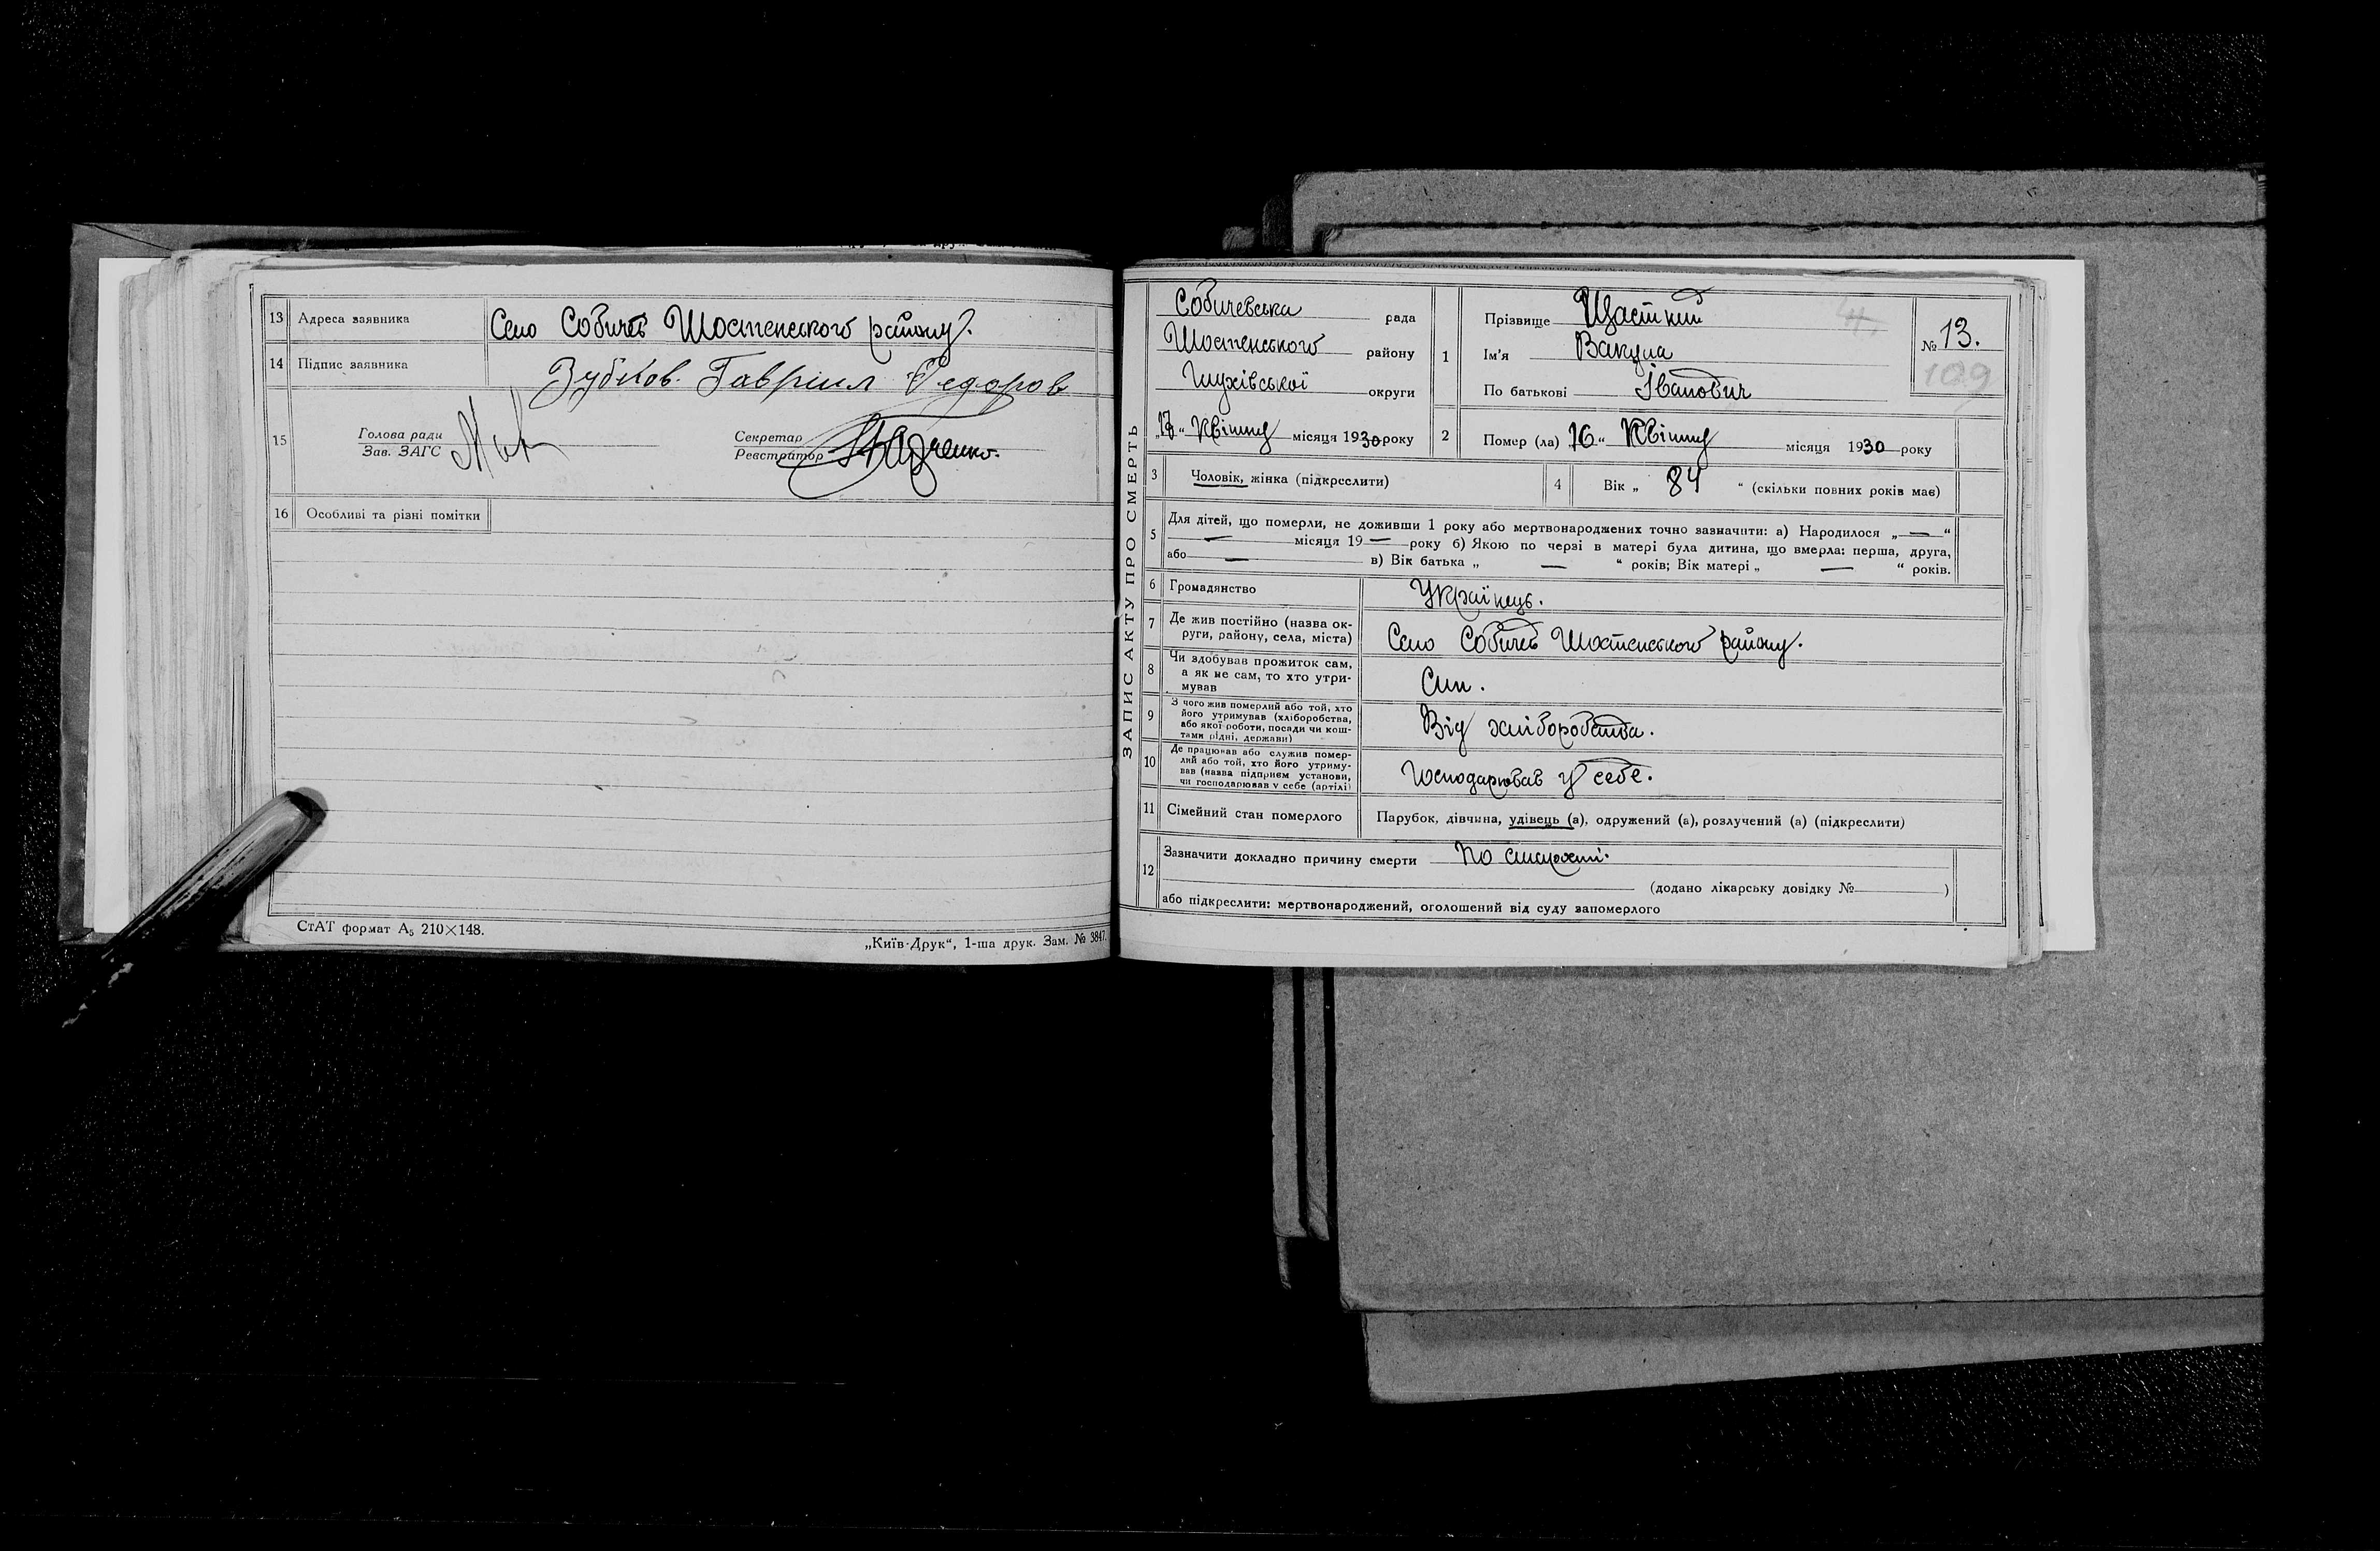 13 Адреса заявника Село Собичев Шостенського району.
14 Підпис заявника Зубков. Гавриил Федоров
15 Голова ради
Зав. ЗАГС
Секретар
Реєстратор
16 Особливі та різні помітки
СтАТ формат А₅ 210×148.
„Київ-Друк“, 1-ша друк. Зам. № 3847.
ЗАПИС АКТУ ПРО СМЕРТЬ
Собичевська рада
Шостенського району
Глухівської округи
Квітня місяця 1930 року
1 Прізвище Щасткий
Ім'я Вакула
По батькові Іванович
№ 13.
109
2 Помер (ла) 16 “ Квітня місяця 1930 року
3 Чоловік, жінка (підкреслити)
4 Вік „ 84 “ (скільки повних років має)
5 Для дітей, що померли, не доживши 1 року або мертвонароджених точно зазначити: а) Народилося „ — “
— місяця 19 — року б) Якою по черзі в матері була дитина, що вмерла: перша, друга,
або — в) Вік батька „ — “ років; Вік матері „ — “ років.
6 Громадянство Українець.
7 Де жив постійно (назва ок-
руги, району, села, міста) Село Собичев Шостенського району.
8 Чи здобував прожиток сам,
а як не сам, то хто утри-
мував Син.
9 З чого жив померлий або той, хто
його утримував (хліборобства,
або якої роботи, посади чи кош-
тами рідні, держави) Від хліборобства.
10 Де працював або служив помер-
лий або той, хто його утриму-
вав (назва підприєм установи,
чи господарював у себе (артілі) Господарював у себе.
11 Сімейний стан померлого Парубок, дівчина, удівець (а), одружений (а), розлучений (а) (підкреслити)
12 Зазначити докладно причину смерти По старости.
(додано лікарську довідку № )
або підкреслити: мертвонароджений, оголошений від суду запомерлого